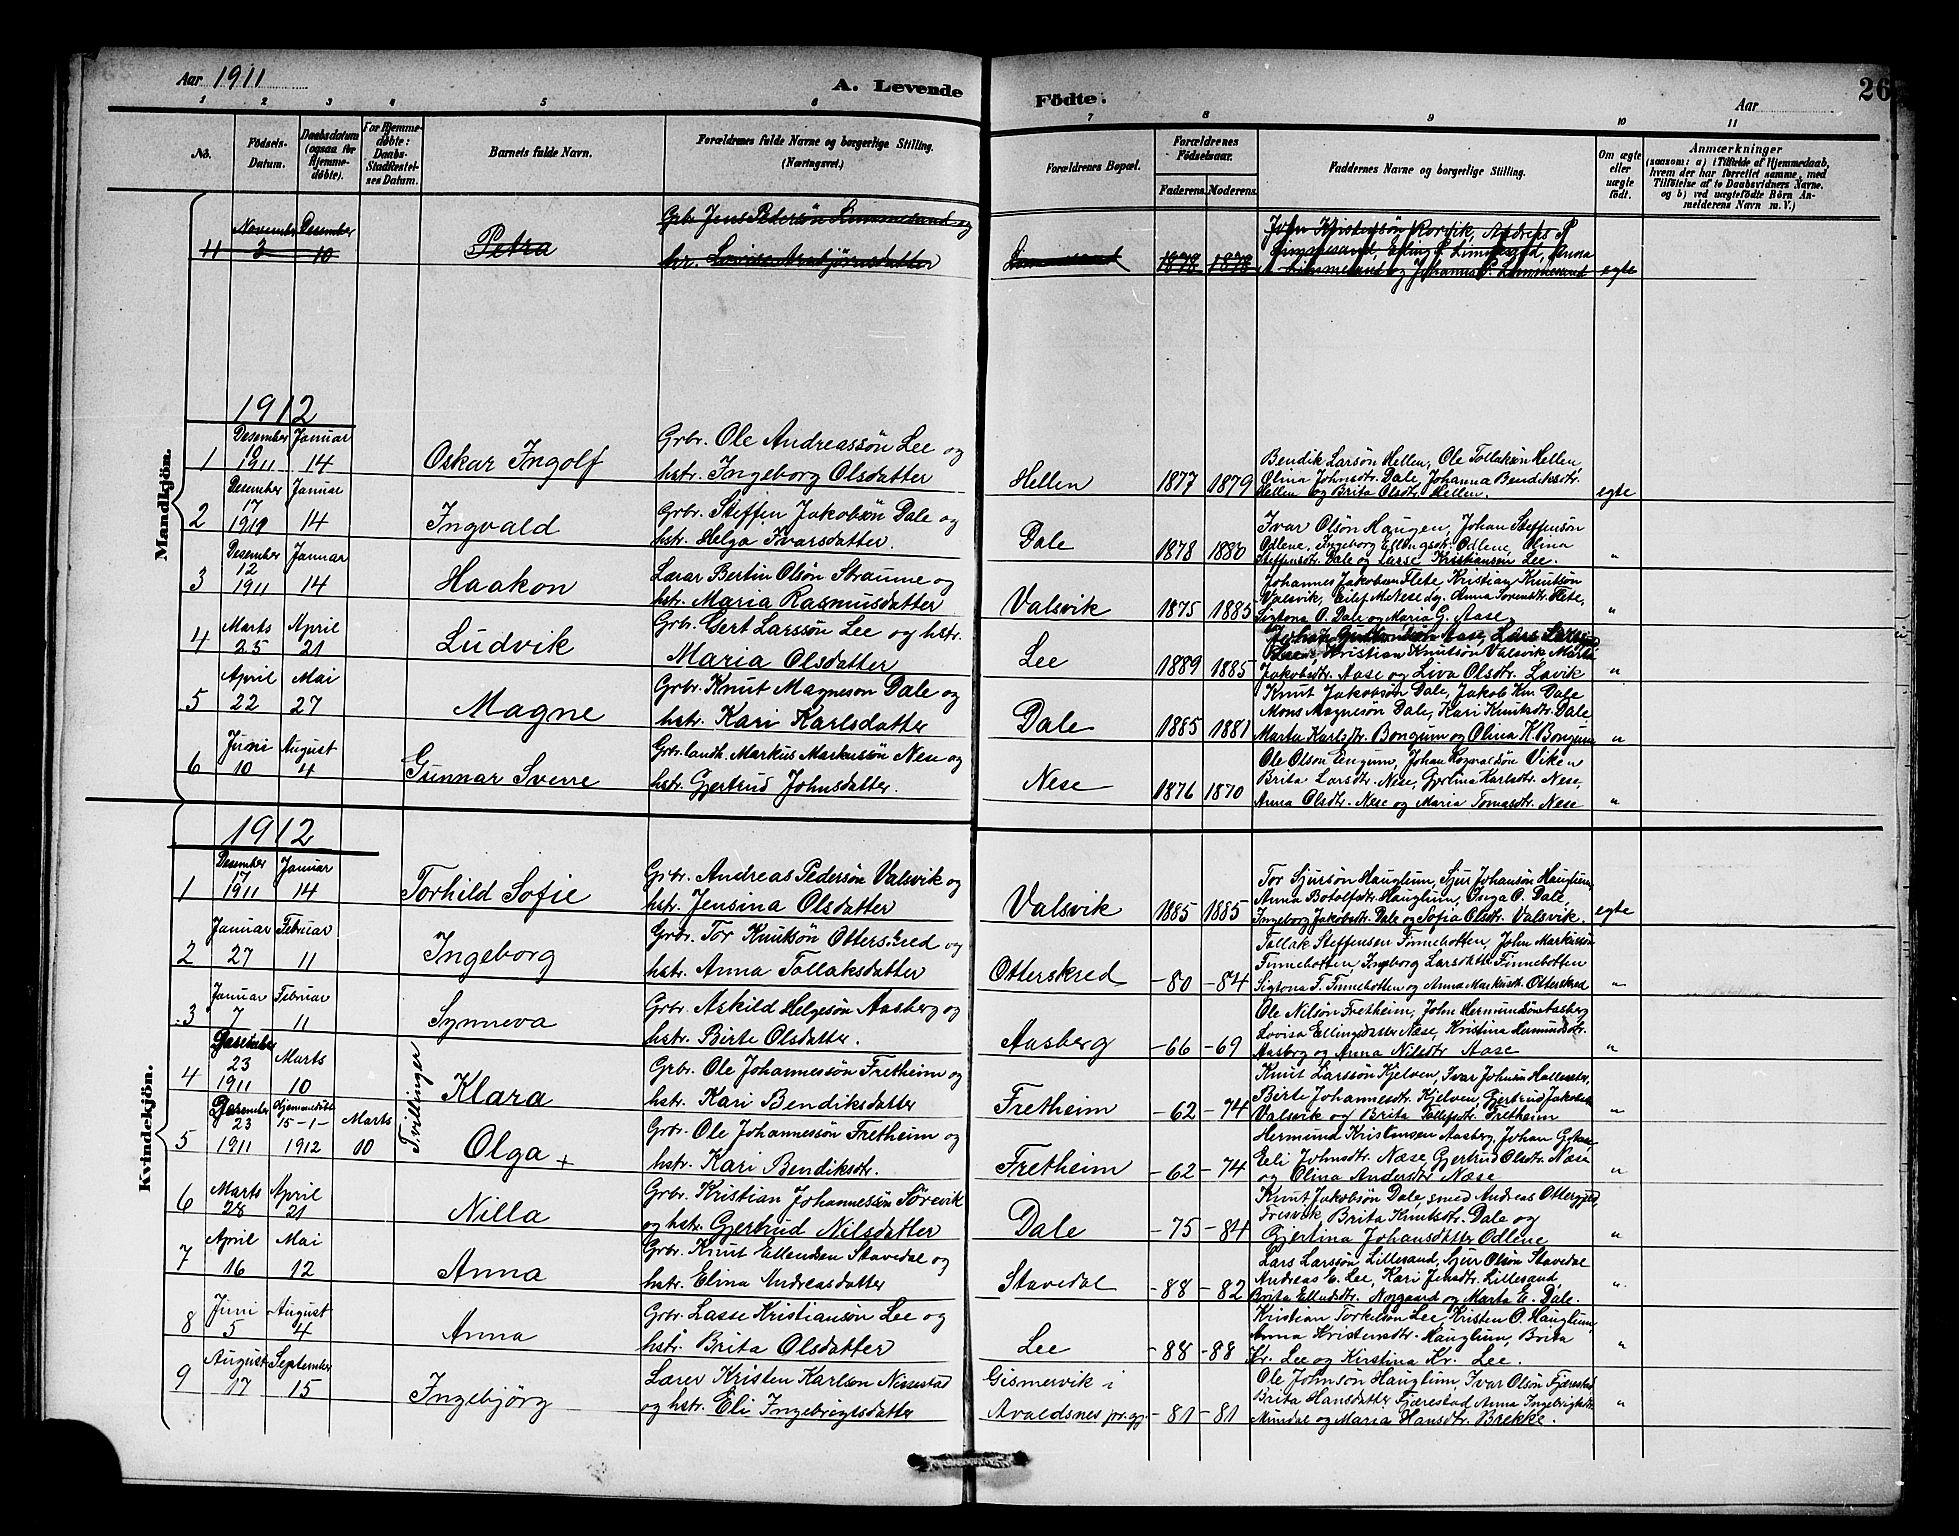 Aar 1911
A. Levende
Födte.
Aar
26
1 2 3 4 5 6 7 8 9 10 11
No.
Födsels-
Datum.
Daabsdatum
(ogsaa for
Hjemme-
döbte).
For Hjemme-
döbte:
Daabs-
Stadfæstel-
ses Datum.
Barnets fulde Navn.
Forældrenes fulde Navne og borgerlige Stilling.
(Næringsvei.)
Forældrenes Bopæl.
Forældrenes
Födselsaar.
Faderens. Moderens.
Faddernes Navne og borgerlige Stilling.
Om ægte
eller
uægte
født.
Anmærkninger
(saasom: a) i Tilfælde af Hjemmedaab,
hvem der har forrettet samme, med
Tilföielse af to Daabsvidners Navne.
og b) ved uægtefödte Börn An-
melderens Navn m. V.)
November Desember
11 3 10 Petra
Grbr. Jens Pedersön Limmesand og
hr. Lovise Arnbjörnsdatter
Limmesand 1878 1878
John Kristensön Rorvik, Andreas P
Limmesand, Erling P. Limmesand, Anna
Limmesand og Johannes P. Limmesand egte
Mandkjön.
1912
1 Desember 10 1911 Januar 14 Oskar Ingolf
Grbr. Ole Andreassön Lee og
hstr. Ingeborg Olsdatter
Hellen 1877 1879
Bendik Larsön Hellen, Ole Tollaksön Hellen,
Olina Johnsdtr. Dale, Johanna Bendiksdtr.
Hellen og Brita Olsdtr. Hellen. egte
2 Desember 17 1911 Januar 14 Ingvald
Grbr. Steffen Jakobsön Dale og
hstr. Helga Ivarsdatter.
Dale 1878 1880
Ivar Olsön Haugen, Johan Steffensön
Odlene, Ingeborg Ellingsdtr. Odlene, Olina
Steffensdtr. Dale og Lasse Kristiansön Lee. "
3 Desember 12 1911 Januar 14 Haakon
Lærar Bertin Olsön Straume og
hstr. Maria Rasmusdatter
Valsvik 1875 1885
Johannes Jakobsen Flete, Kristian Knutsön
Valsvik, Eilef M. Nese og Anna Sorensdtr. Flete,
Sigtona O. Dale og Maria G. Aase. "
4 Marts 25 April 21 Ludvik
Grbr. Gert Larssön Lee og hstr.
Maria Olsdatter
Lee 1889 1885
Aase, Lars Larssön
Lee, Kristian Knutsön Valsvik Marta
Jakobsdtr. Aase og Liva Olsdtr. Lavik "
5 April 22 Mai 27 Magne
Grbr. Knut Magneson Dale og
hstr. Kari Karlsdatter
Dale 1885 1881
Knut Jakobsön Dale, Jakob Kn. Dale
Mons Magnesön Dale, Kari Knutsdtr. Dale,
Marta Karlsdtr. Bongum og Olina K. Bongum "
6 Juni 10 August 4 Gunnar Sverre
Grbr. landh. Markus Markussön Nese og
hstr. Gjertrud Johnsdatter.
Nese 1876 1870
Ole Olson Engum, Johan Rognaldsön Viken
Brita Larsdtr. Nese, Gjertina Karlsdtr. Nese,
Anna Olsdtr. Nese og Maria Tomasdtr. Nese "
Kvindekjön.
1912
1 Desember 17 1911 Januar 14 Torhild Sofie
Grbr. Andreas Pedersön Valsvik og
hstr. Jensina Olsdatter
Valsvik 1885 1885
Tor Sjursön Hauglum, Sjur Johansön Hauglum,
Anna Botolfsdtr. Hauglum, Inga O. Dale,
Ingeborg Jakobsdtr. Dale og Sofia Olsdtr. Valsvik. egte
2 Januar 27 Februar 11 Ingeborg
Grbr. Tor Knutsön Otterskred og
hstr. Anna Tollaksdatter
Otterskred -80 -84
Tollak Steffensen Finnebotten, John Markussön
Finnebotten, Ingborg Larsdatter Finnebotten
Sigtona T. Finnebotten og Anna Markusdtr. Otterskred "
3 Januar 7 Februar 11 Synneva
Grbr. Askild Helgesön Aasberg og
hstr. Birte Olsdatter.
Aasberg -66 -69
Ole Nilsön Fretheim, John Hermundsön Aasberg
Lovisa Ellingsdatter Næse, Kristina Hermundsdtr.
Aasberg og Anna Nilsdtr Aase "
Tvillinger
4 Desember 23 1911 Marts 10 Klara
Grbr. Ole Johannessön Fretheim og
hstr. Kari Bendiksdatter
Fretheim -62 -74
Knut Larssön Kjelven, Ivar Johnsön Halleseter,
Birte Johannesdtr. Kjelven, Gjertrud Jakobsdtr
Valsvik og Brita Tollefsdtr. Fretheim "
5 Desember 23 1911 Hjemmedöbt 15-1-1912 Marts 10 Olga +
Grbr. Ole Johannessön Fretheim og
hstr. Kari Bendiksdtr.
Fretheim -62 -74
Hermund Kristensen Aasberg, Johan G. Aase
Eli Johnsdtr. Næse Gjertrud Olsdtr. Næse
og Olina Andersdtr Næse "
6 Marts 28 April 21 Nilla
Grbr. Kristian Johannessön Sörevik
og hstr. Gjertrud Nilsdatter
Dale -75 -84
Knut Jakobsön Dale, smed Andreas Ottergjerd,
Tresvik, Brita Knutsdtr. Dale og
Gjertina Johansdatter Odlene "
7 April 16 Mai 12 Anna
Grbr. Knut Ellendsen Stavedal og
hstr. Elina Andreasdatter
Stavedal -88 -82
Lars Larssön Lillesand, Sjur Olsön Stavedal
Andreas E. Lee, Kari Jensdtr. Lillesand,
Brita Ellendsdtr. Norgaard og Marta E. Dale. "
8 Juni 5 August 4 Anna
Grbr. Lasse Kristiansön Lee og
hstr. Brita Olsdatter
Lee -88 -88
Kristian Torkelson Lee, Kristen O. Hauglum,
Anna Kristensdtr. Hauglum, Brita
Kr. Lee og Kirstina Kr. Lee. "
9 August 17 September 15 Ingebjörg
Lærer Kristen Karlsen Nissestad
og hstr. Eli Ingebrigtsdatter
Gismervik i
Avaldsnes pr.gj. -81 -81
Ole Johnsön Hauglum, Ivar Olsön Fjærestad
Brita Hansdatter Fjærestad Anna Ingebrigtsdtr.
Mundal og Maria Hansdtr. Brekke. "